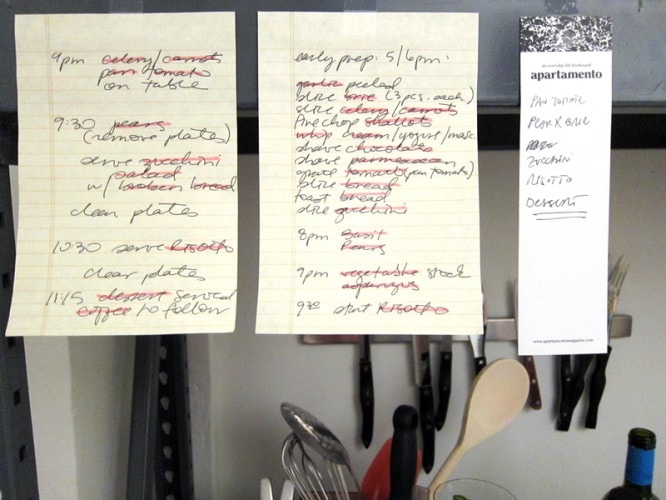 9pm celery/carrots
pan tomato
on table
9:30 pears
(remove plates)
serve zucchini
salad
w/ broken bread
clear plates
10:30 serve Risotto
clear plates
11:15 dessert served
coffee to follow
early prep. 5/6pm:
garlic peeled
slice brie (3 pcs. each)
slice celery/carrots
fine chop shallots
whip cream/yogurt/masc
shave chocolate
shave parmesean
grate tomato (pan tomato)
slice bread
toast bread
slice zucchini
8pm Basil
Pears
9pm vegetable stock
asparagus
9:30 start Risotto
an everyday life bookmark
apartamento
PAN TOMATE
PEAR & BRIE
ZUCCHINI
RISOTTO
DESSERT
www.apartamentomagazine.com